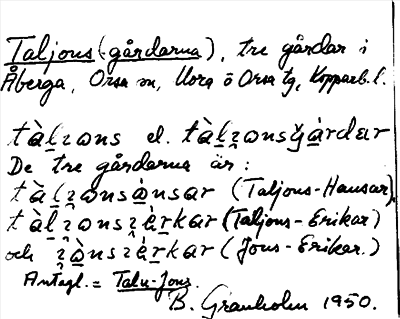 Taljons (-gårdarna), tre gårdar i
Åberga, Orsa sn, Mora o Orsa tg, Kopparb. l.
tàlʒɷns el. tàlʒɷnsgà̱rdar
De tre gårdarna är:
tàlʒɷnsànsar (Taljons-Hansar),
tàlʒɷnsʒèrkar (Taljons-Erikar)
och ʒɷ̀nsʒèrkar (Jons-Erikar.)
Antagl. = Talu-Jons.
B. Granholm 1950.